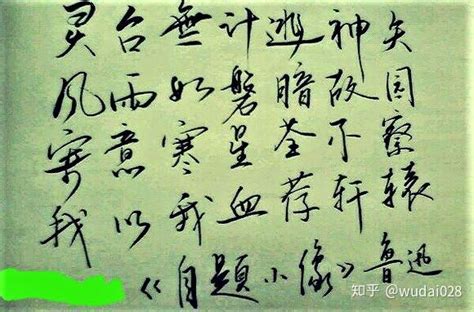 灵台無计逃神矢
风雨如磐暗故园
寄意寒星荃不察
我以我血荐轩辕
《自題小像》鲁迅
知乎 @wudai028